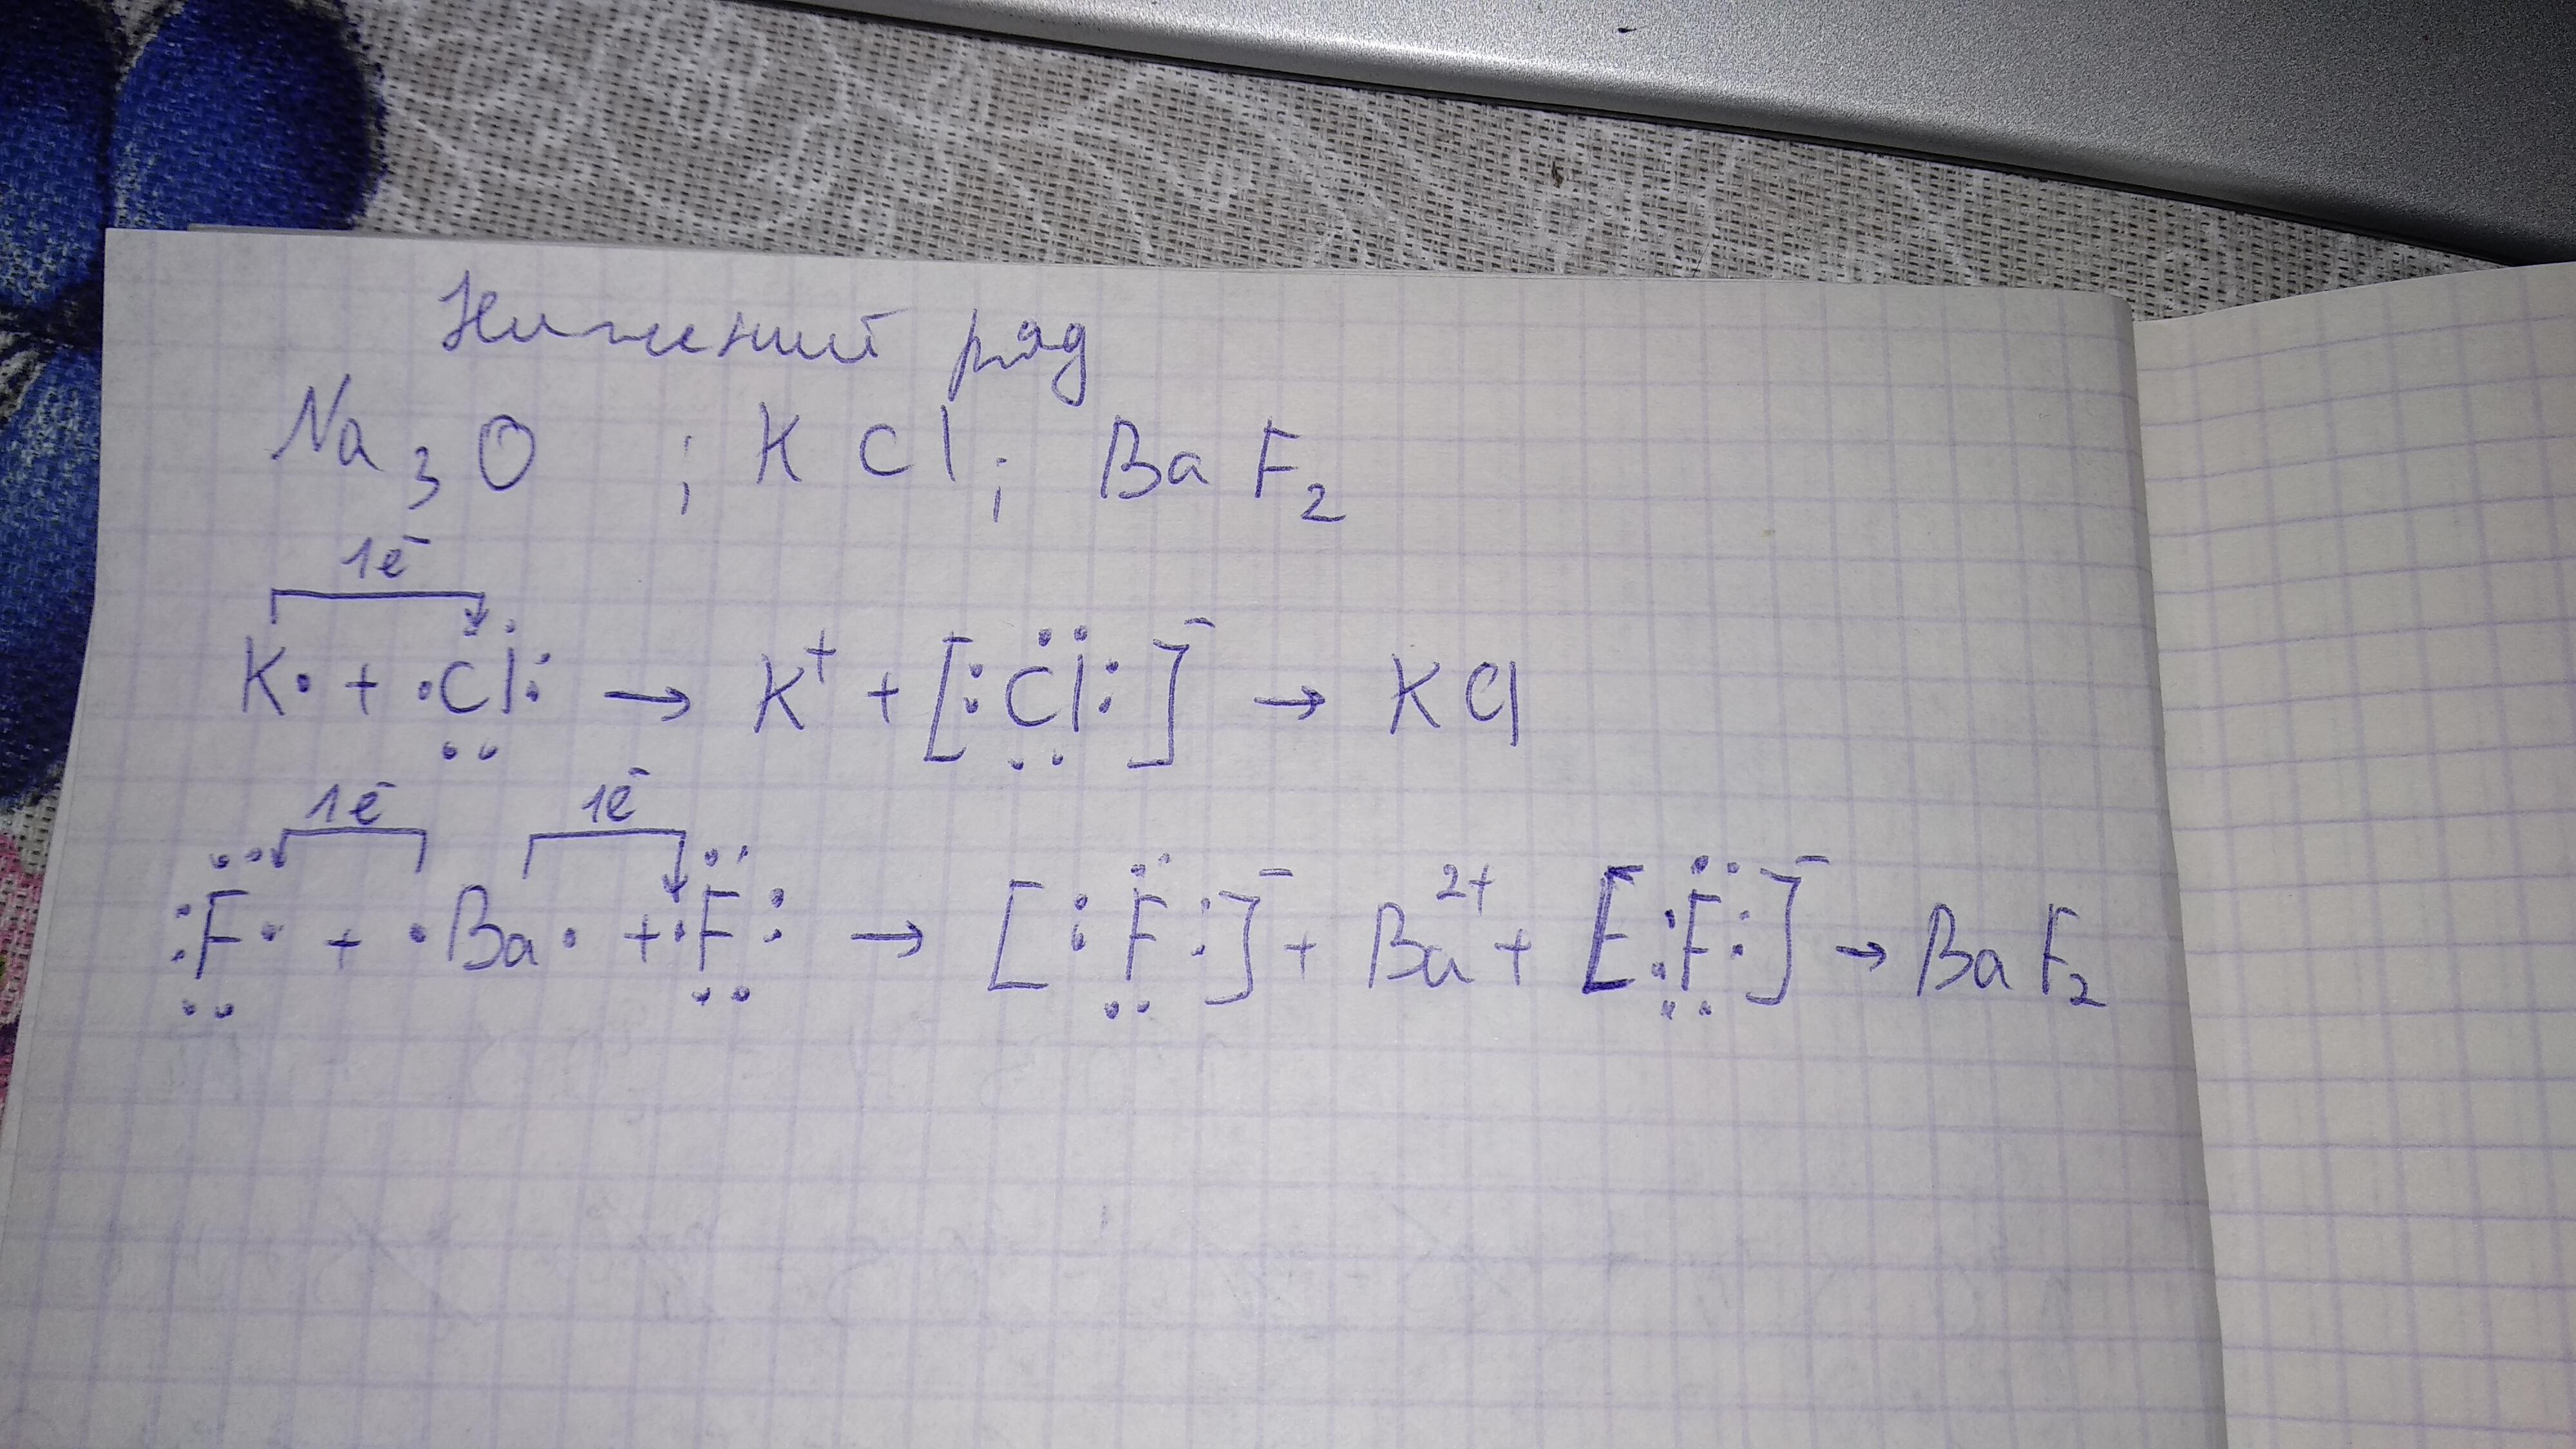 Нижений ряд
Na₃O ; KCl ; BaF₂
1ē
K· + ·Cl: → K⁺ + [:Cl:]⁻ → KCl
1ē 1ē
:F· + ·Ba· + ·F: → [:F:]⁻ + Ba²⁺ + [:F:]⁻ → BaF₂